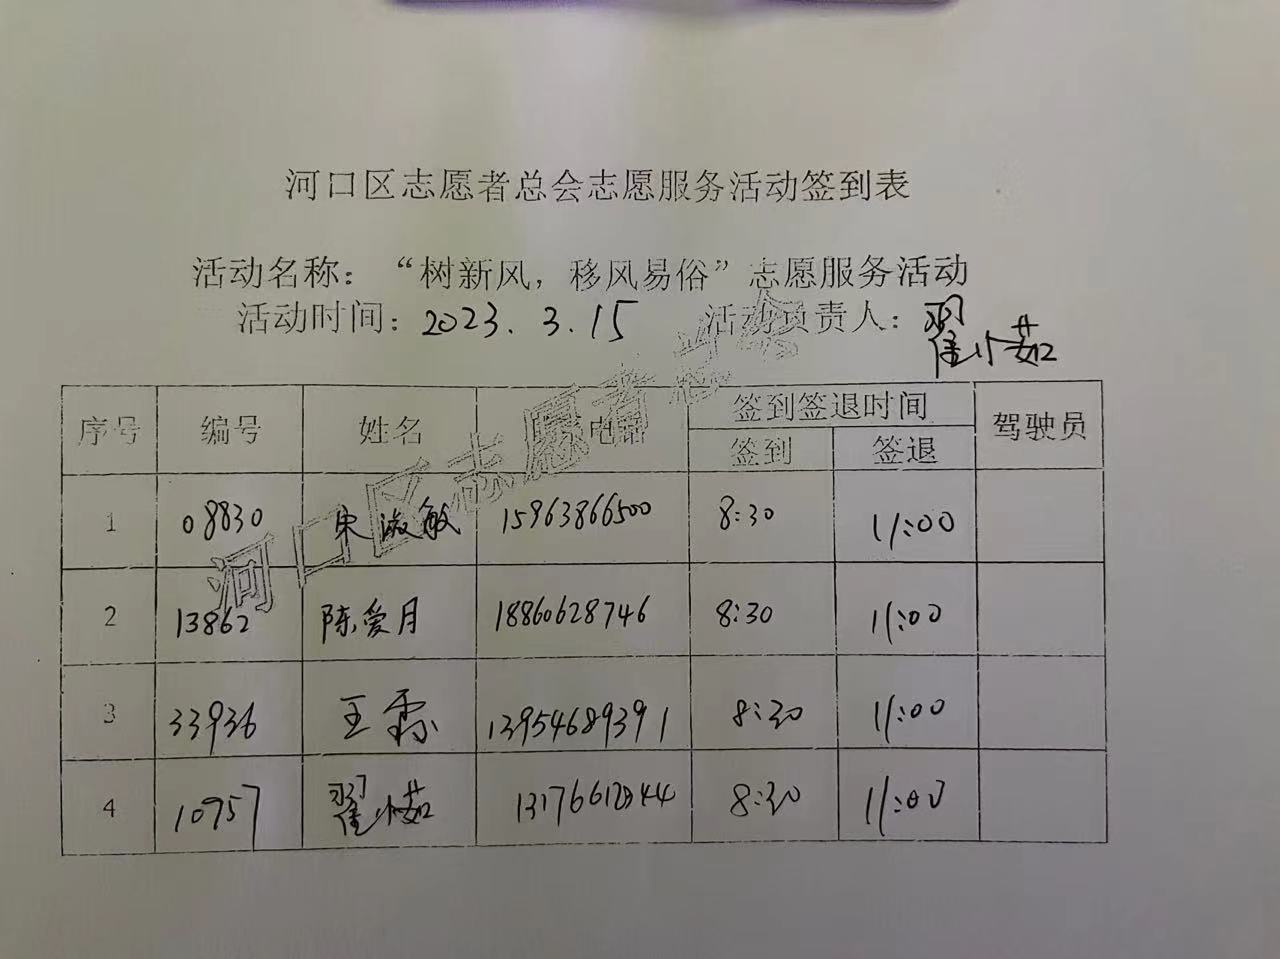 河口区志愿者总会志愿服务活动签到表
活动名称：“树新风，移风易俗”志愿服务活动
活动时间：2023.3.15 活动负责人：翟小茹
序号 编号 姓名 电话 签到签退时间 驾驶员
签到 签退
1 08830 宋淑敏 15963866500 8:30 11:00
2 13862 陈爱月 18860628746 8:30 11:00
3 33936 王霖 13954689391 8:30 11:00
4 10957 翟小茹 8:30 11:00
河口区志愿者总会